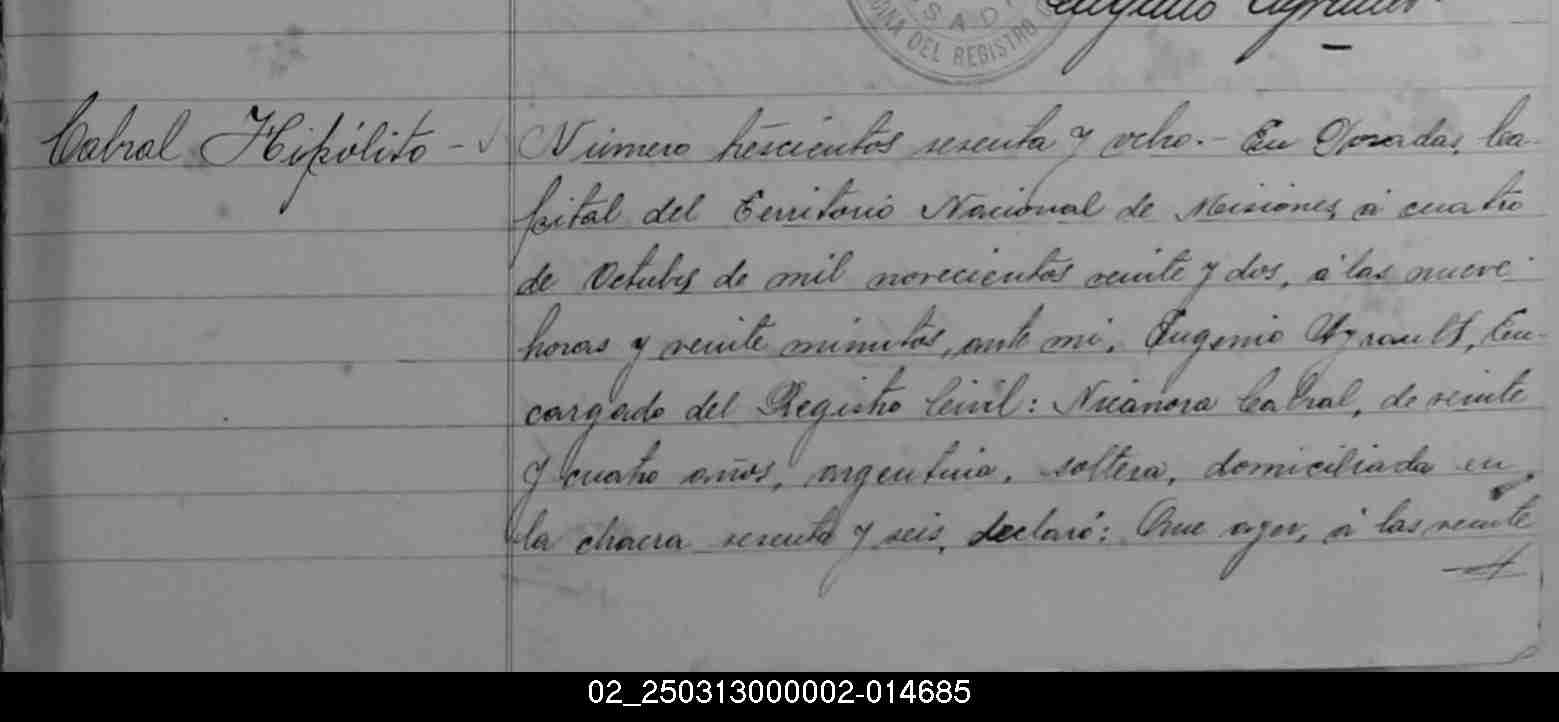 Eugenio Ayrault.
SAD
OFICINA DEL REGISTRO
Cabral Hipólito -
Número trescientos sesenta y ocho.- En Posadas, Ca-
pital del Territorio Nacional de Misiones, á cuatro
de Octubre de mil novecientos veinte y dos, á las nueve
horas y veinte minutos, ante mi, Eugenio Ayrault, En-
cargado del Registro Civil: Nicanora Cabral, de veinte
y cuatro años, argentina, soltera, domiciliada en
la chacra sesenta y seis, declaró: Que ayer, á las veinte
02_250313000002-014685